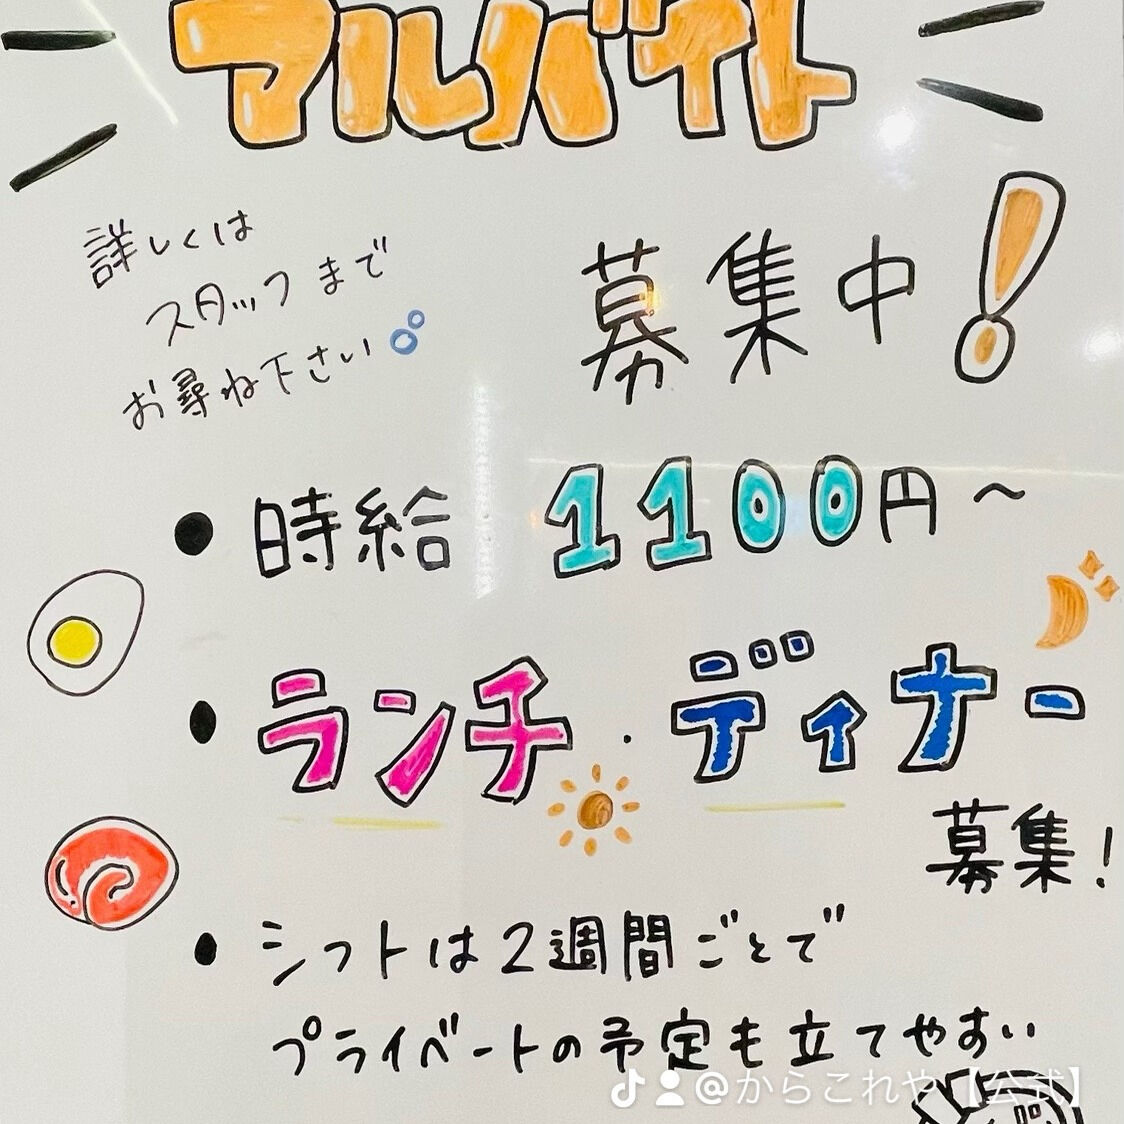 アルバイト
詳しくは
スタッフまで
お尋ね下さい
募集中!
• 時給 1100円〜
• ランチ・ディナー
募集!
• シフトは2週間ごとで
プライベートの予定も立てやすい
@からこれや【公式】